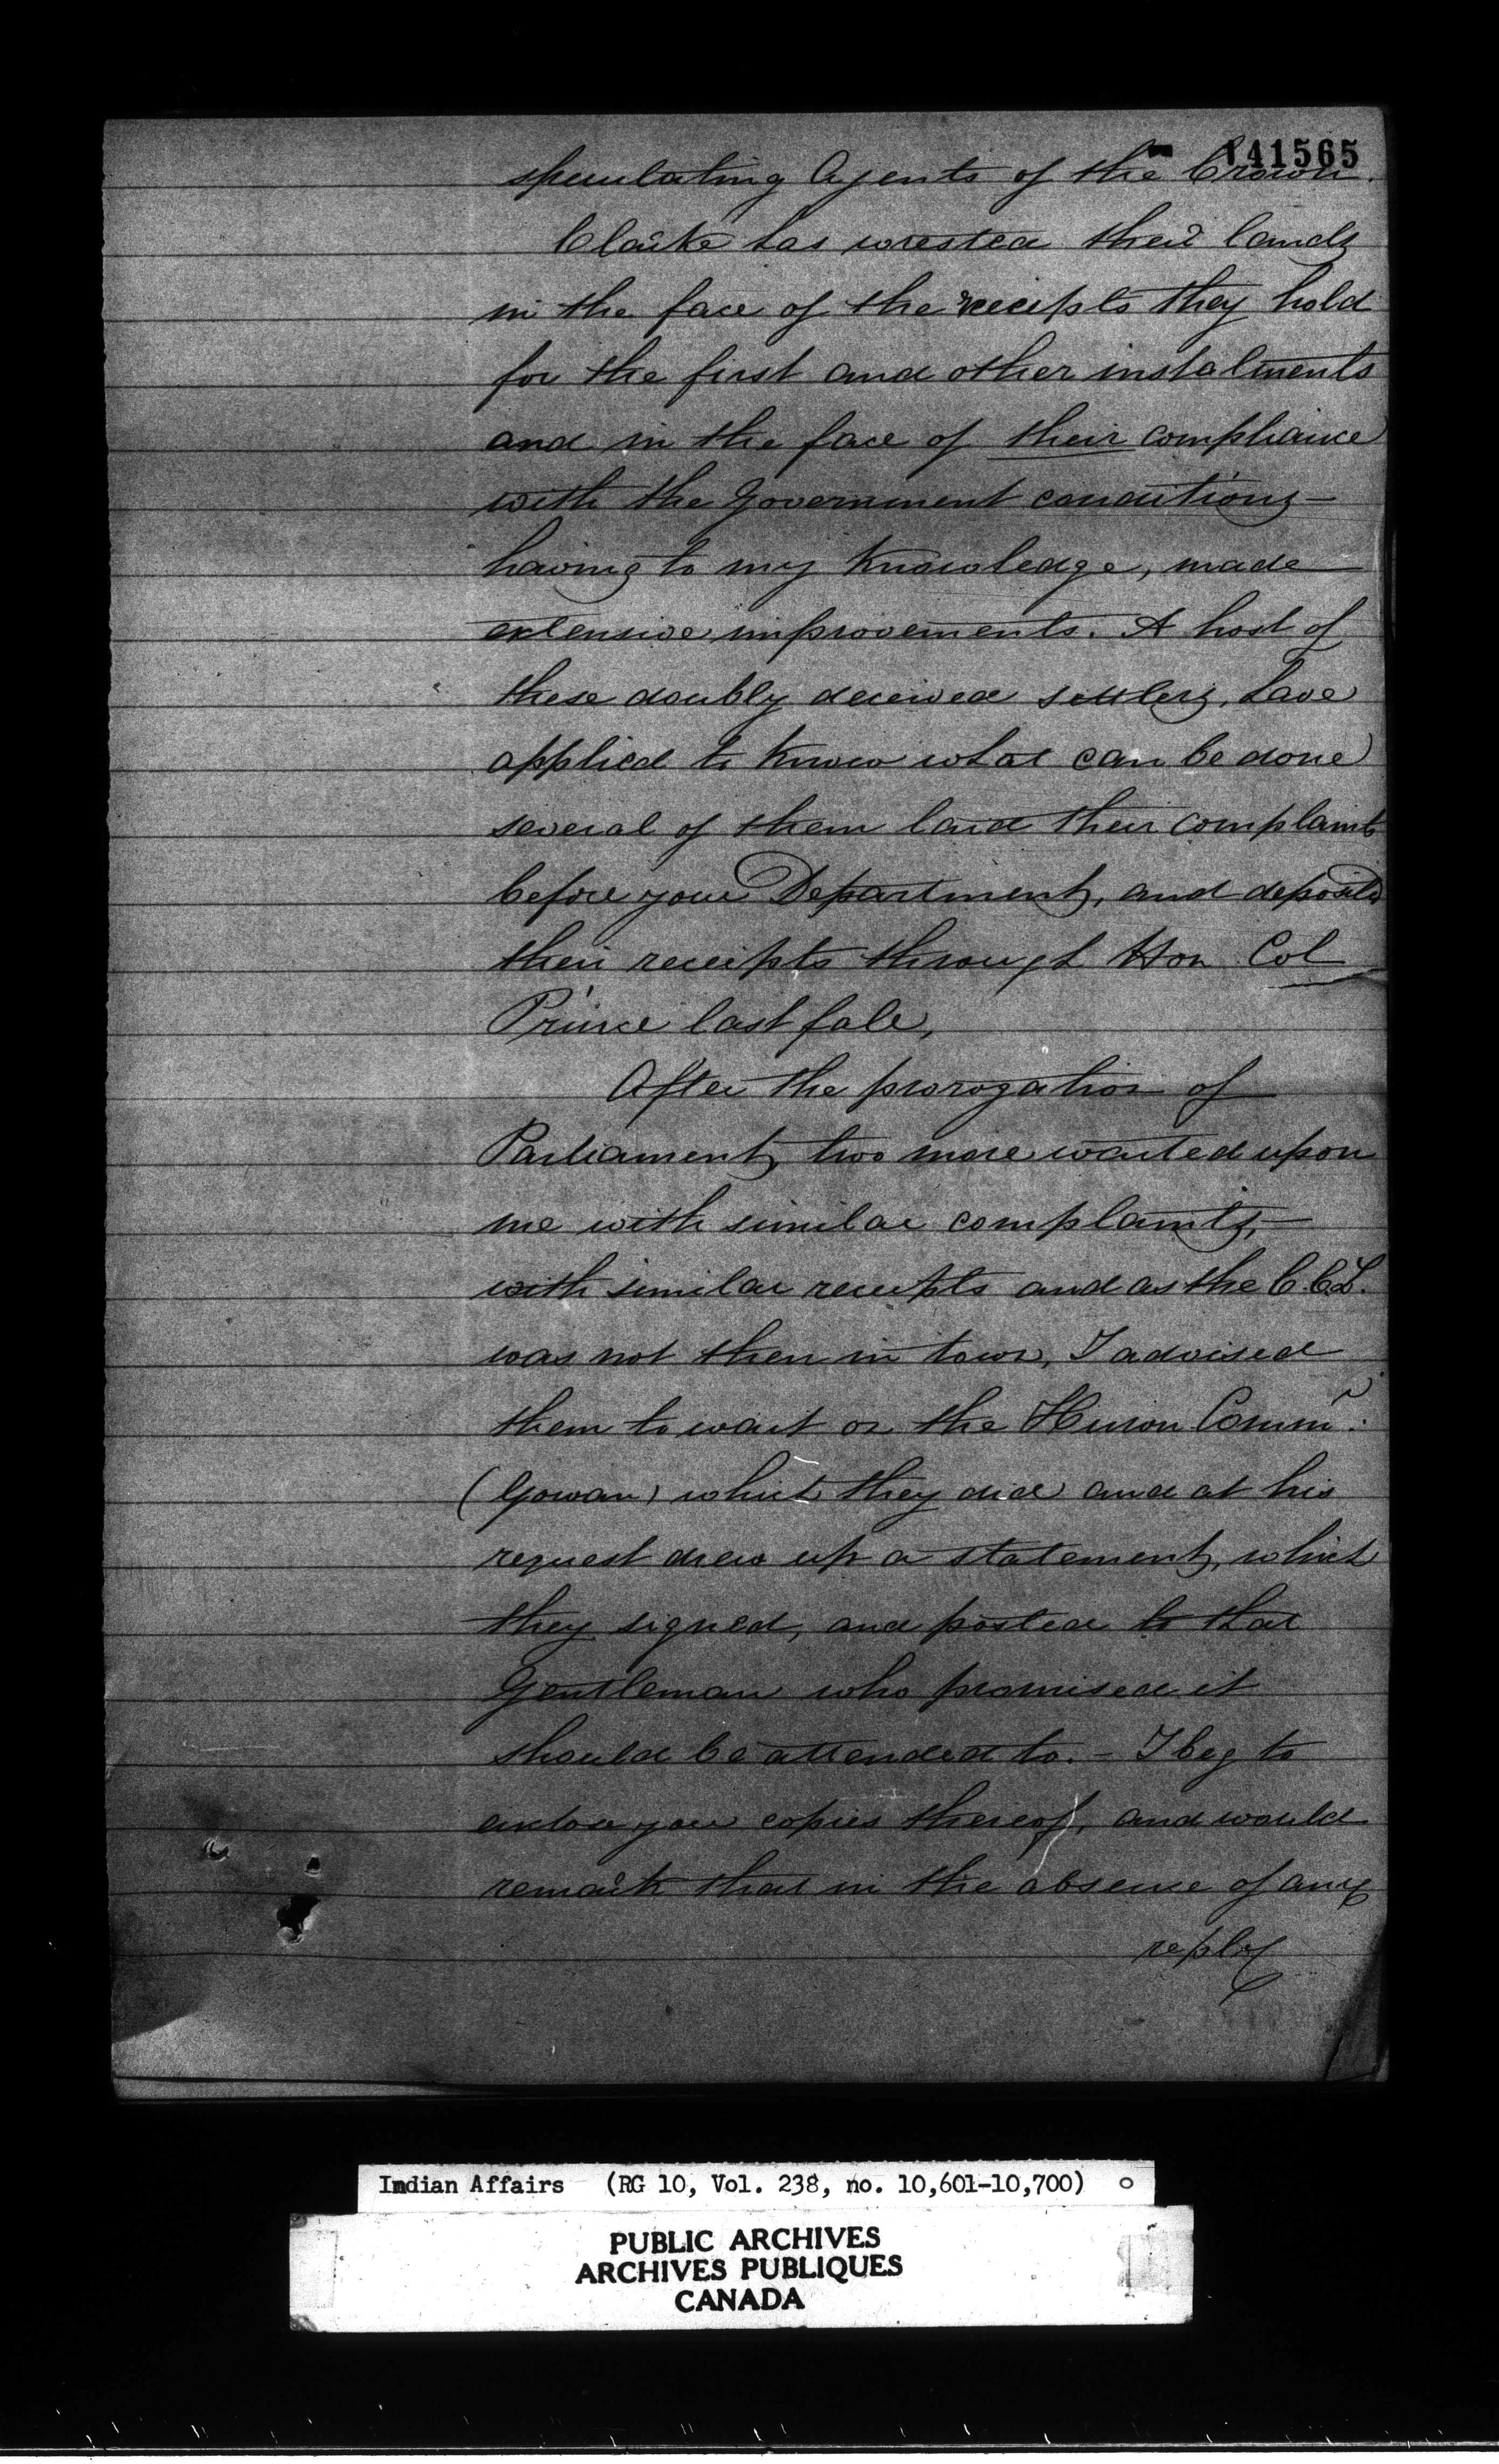 141565
speculating Agents of the Crown.
Clarke has wrested their lands
in the face of the receipts they hold
for the first and other instalments
and in the face of their compliance
with the Government conditions—
having to my Knowledge, made
extensive improvements. A host of
these doubly deceived settlers, have
applied to Know what can be done
several of them laid their complaints
before your Department, and deposited
their receipts through Hon Col
Prince last fale,
After the prorogation of
Parliament, two more waited upon
me with similar complaints,—
with similar receipts and as the C.C.L.
was not then in town, I advised
them to wait on the Huron Commr.
(Gowan) which they did and at his
request drew up a statement, which
they signed, and posted to that
Gentleman who promised it
should be attended to. – I beg to
enclose you copies thereof, and would
remark that in the absence of any
reply
Indian Affairs (RG 10, Vol. 238, no. 10,601-10,700)
PUBLIC ARCHIVES
ARCHIVES PUBLIQUES
CANADA